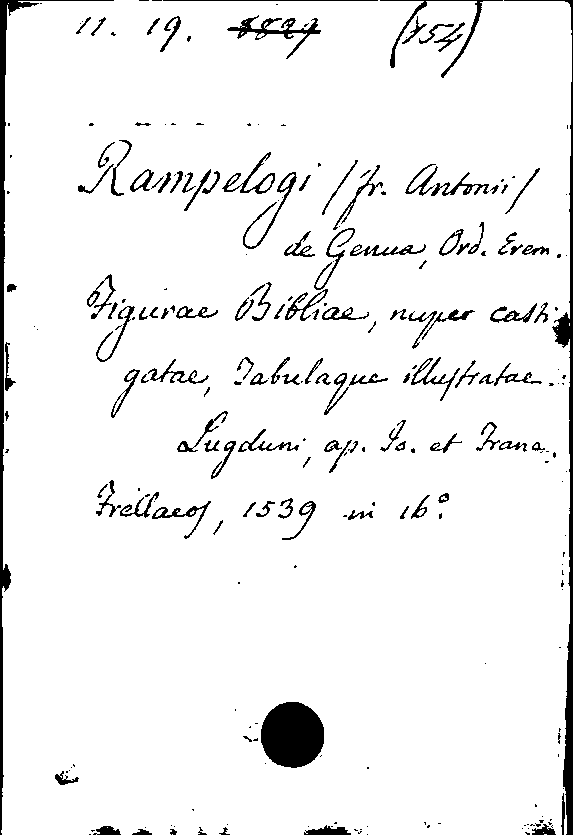 11. 19. 8829 (154)
Rampelogi /fr. Antonii/
de Genua, Ord. Erem.
Figurae Bibliae, nuper casti
gatae, Tabulaque illustratae.
Lugduni, ap. Io. et Franc.
Frellaeos, 1539 in 16°.